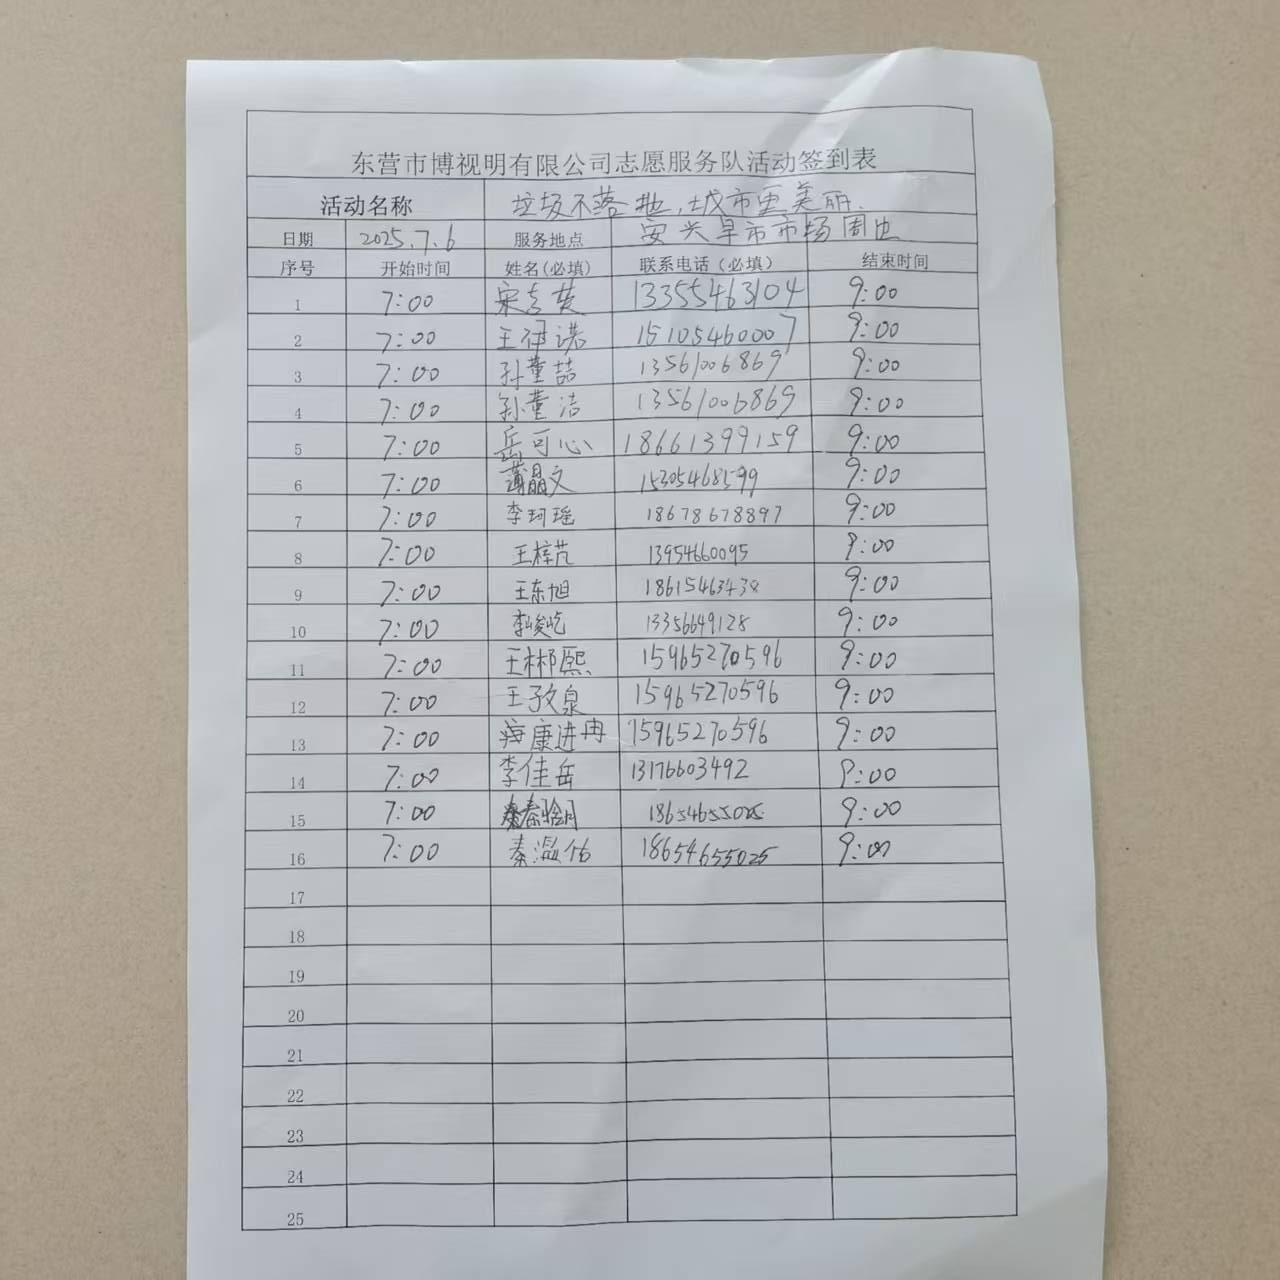 东营市博视明有限公司志愿服务队活动签到表
活动名称 垃圾不落地,城市更美丽.
日期 2025.7.6 服务地点 安兴早市市场周边
序号 开始时间 姓名(必填) 联系电话(必填) 结束时间
1 7:00 宋吉英 13355463104 9:00
2 7:00 王伊诺 15105460007 9:00
3 7:00 孙董喆 13561006869 9:00
4 7:00 孙董洁 13561006869 9:00
5 7:00 岳可心 18661399159 9:00
6 7:00 薄晶文 15305468599 9:00
7 7:00 李珂瑶 18678678897 9:00
8 7:00 王梓芃 13954660095 9:00
9 7:00 王东旭 18615463438 9:00
10 7:00 李峻屹 13356649128 9:00
11 7:00 王彬熙 15965270596 9:00
12 7:00 王孜泉 15965270596 9:00
13 7:00 海康进冉 15965270596 9:00
14 7:00 李佳岳 13176603492 9:00
15 7:00 18654655025 9:00
16 7:00 秦温 18654655025 9:00
17
18
19
20
21
22
23
24
25